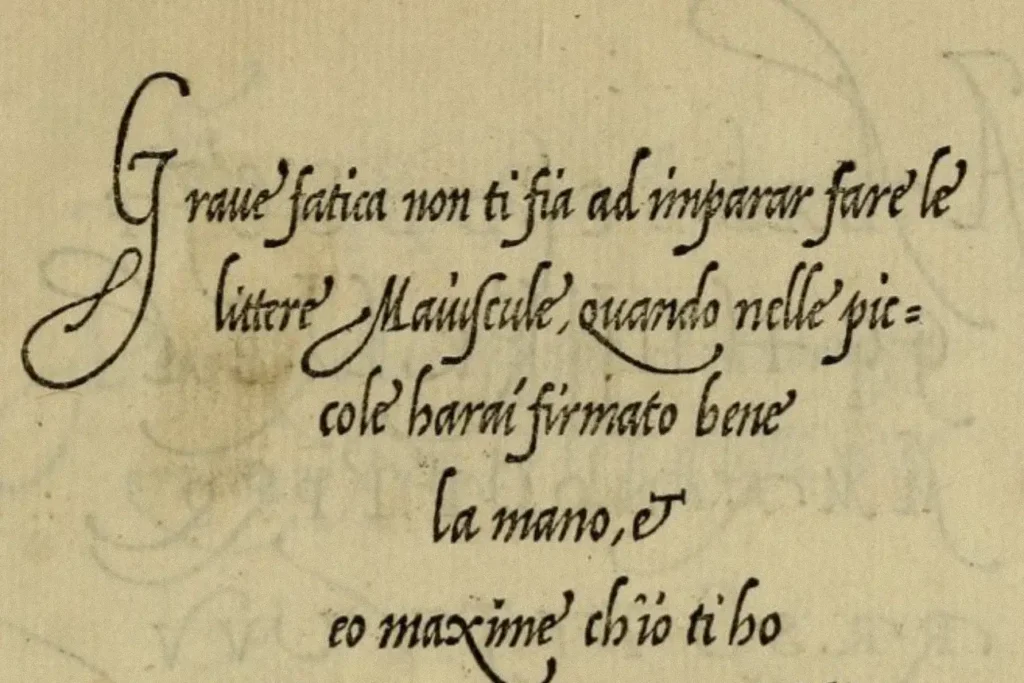 Graue fatica non ti fia ad imparar fare le
littere Maiuscule, quando nelle pic=
cole harai firmato bene
la mano, et
eo maxime ch'io ti ho